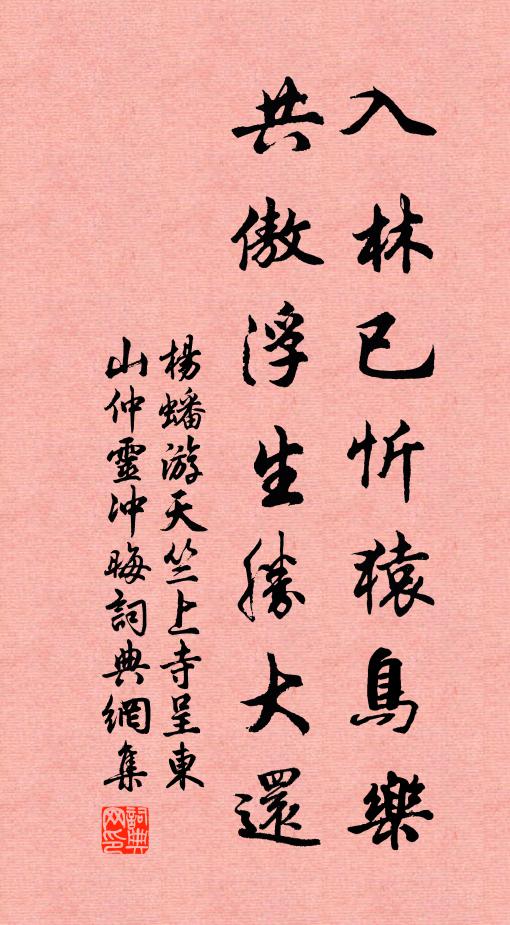 入林已忻猿鳥樂
共傲浮生勝大還
楊蟠游天竺上寺呈東
山仲靈冲晦詞典網集
詞典
网印